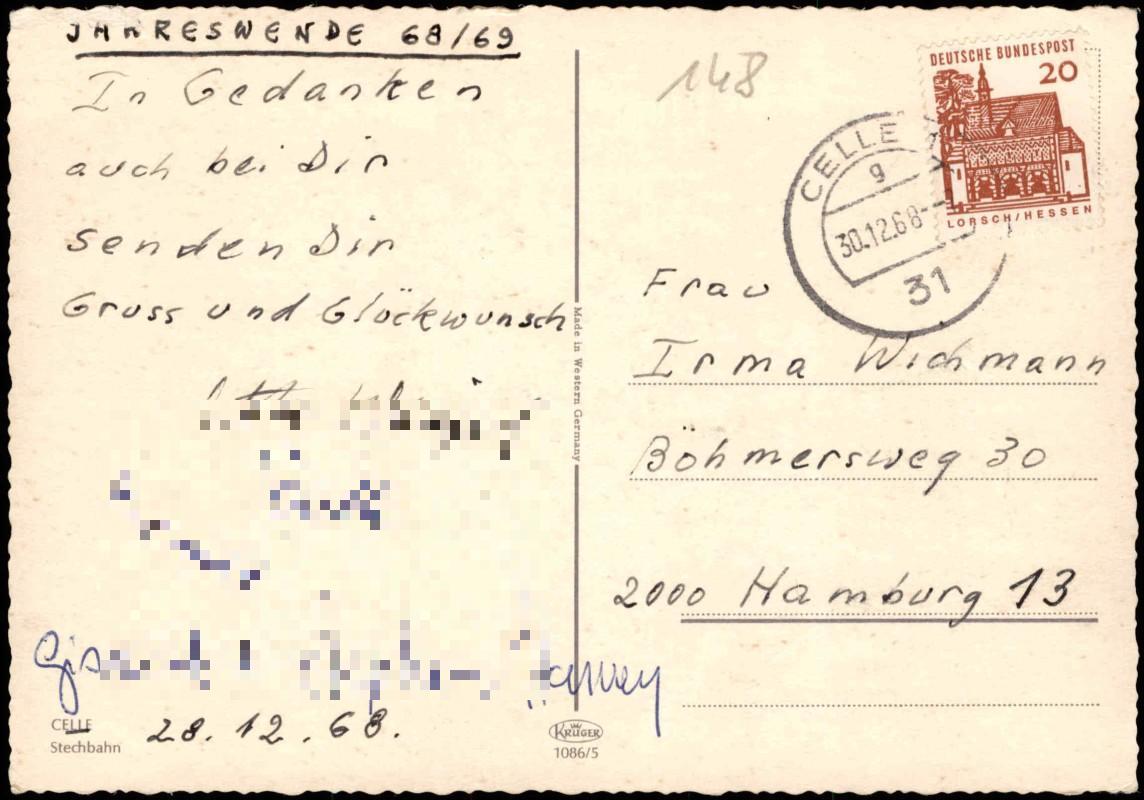 JAHRESWENDE 68/69
In Gedanken
auch bei Dir
senden Dir
Gruss und Glückwunsch
CELLE
Stechbahn
28.12.68.
Made in Western Germany
KRÜGER
1086/5
148
DEUTSCHE BUNDESPOST
20
LORSCH/HESSEN
CELLE
g
30.12.68-
31
Frau
Irma Wichmann
Böhmersweg 30
2000 Hamburg 13